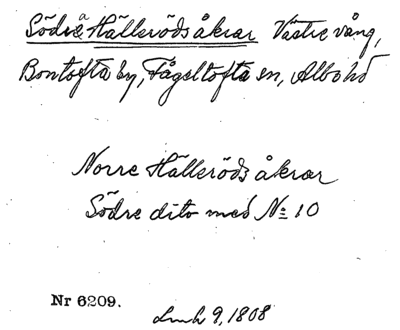 Södra Hällerödsåkrar Västre vång,
Bontofta by, Fågeltofta sn, Albo hd
Norre Hälleröds åkrar
Södre dito med No 10
Nr 6209.
Lmh 9, 1808